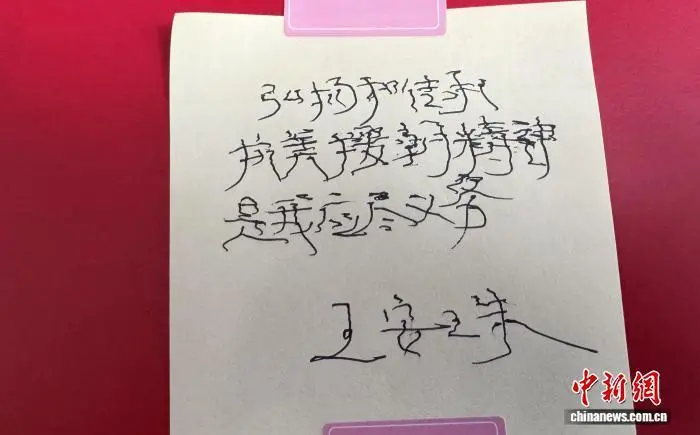 弘扬和传承
抗美援朝精神
是我应尽义务
王安琪
中新網
chinanews.com.cn